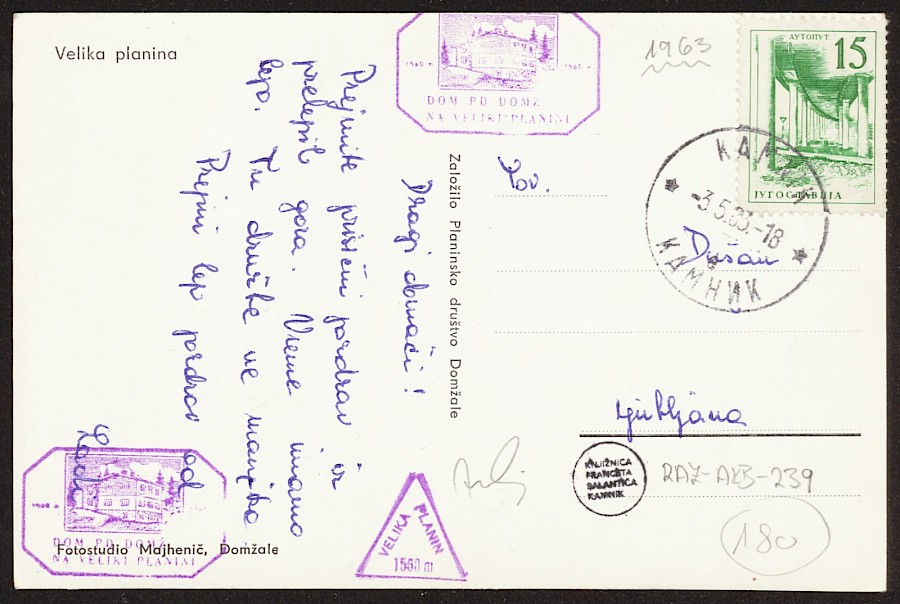 Velika planina
Dragi domači!
Prejmite prisrčni pozdrav iz
prelepih gora. Vreme imamo
lepo. Tu družbe ne manjka.
Prejmi lep pozdrav od
Založilo Planinsko društvo Domžale
Fotostudio Majhenič, Domžale
1560 m
DOM PD DOMŽ
NA VELIKI PLANINI
1963
АУТОПУТ
15
JУГОСЛАВИЈА
KAMNIK
-3.5.63.-18
КАМНИК
Tov.
Dušan
Ljubljana
KNJIŽNICA
FRANCETA
BALANTIČA
KAMNIK
RAZ-AXB-239
180
VELIKA PLANIN
1560 m
DOM PD DOMŽ
NA VELIKI PLANINI